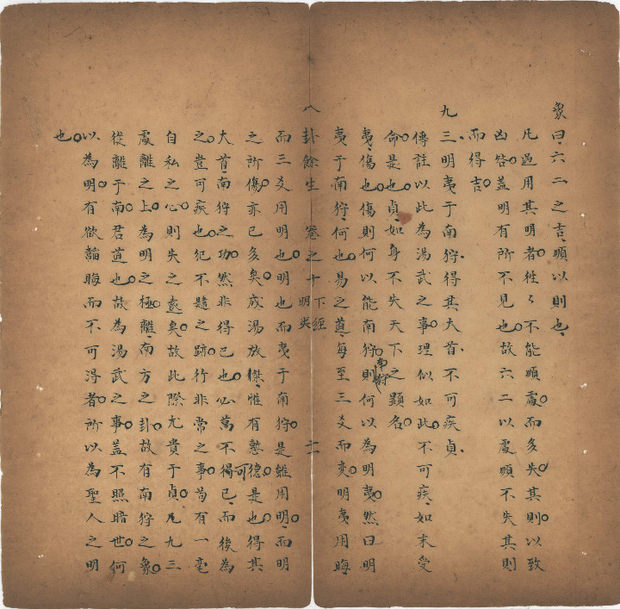 象曰六二之吉順以則也
凡過用其明者徃〻不能順處而多失其則以致
凶咎蓋明有所不見也故六二以處順不失其則
而得吉
九三明夷于南狩得其大首不可疾貞
傳註以此為湯武之事理似如此不可疾如末受
命是也貞如身不失天下之顯名
夷傷也傷則何以能南狩南狩則何以為明夷然曰明
夷于南狩何也易之道每至三爻而变明夷用晦
八卦餘生 卷之十 下經 明夷 二
而三爻用明也明也而夷于南狩是雖用明而明
之所傷亦已多矣成湯放桀惟有慙德是也得其
大首南狩之功然非得已也必萬不得已而後為
之豈可疾也犯不韙之跡行非常之事苟有一毫
自私之心則失之遠矣故此際尤貴于貞凡九三
處離之上為明之極離南方之卦故有南狩之象
從離于南君道也故為湯武之事蓋不照暗世何
以為明有欲韜晦而不可得者所以為聖人之明
也